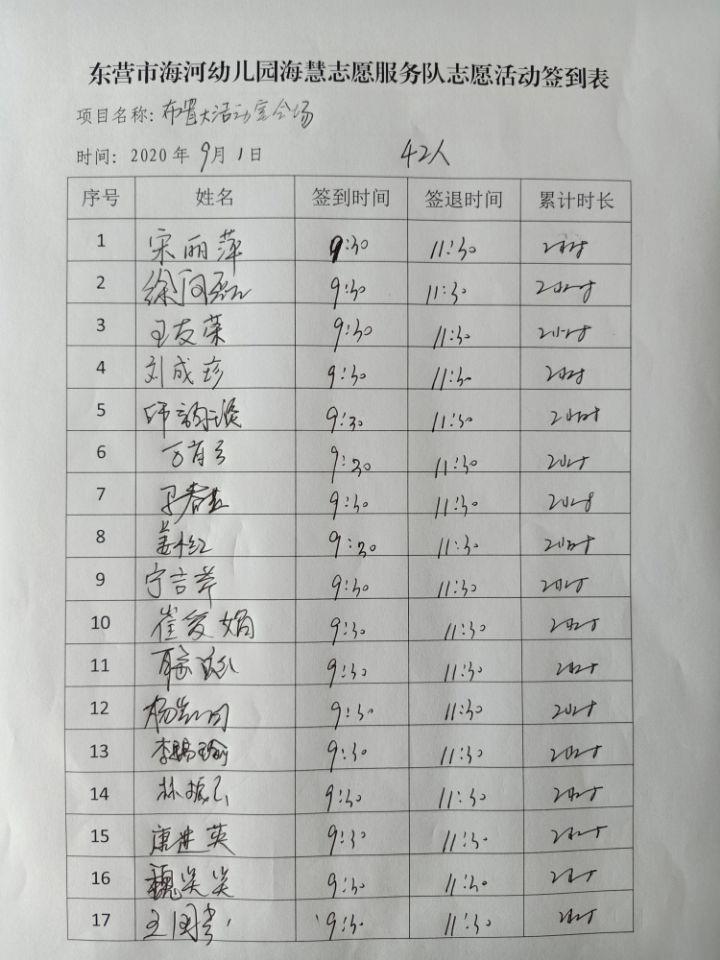 东营市海河幼儿园海慧志愿服务队志愿活动签到表
项目名称：布置大活动室会场
时间：2020年9月1日 42人
序号 姓名 签到时间 签退时间 累计时长
1 宋丽萍 9:30 11:30 2小时
2 徐向磊 9:30 11:30 2小时
3 王友荣 9:30 11:30 2小时
4 刘成珍 9:30 11:30 2小时
5 9:30 11:30 2小时
6 9:30 11:30 2小时
7 9:30 11:30 2小时
8 姜红 9:30 11:30 2小时
9 宁吉芹 9:30 11:30 2小时
10 崔爱娟 9:30 11:30 2小时
11 9:30 11:30 2小时
12 9:30 11:30 2小时
13 9:30 11:30 2小时
14 9:30 11:30 2小时
15 唐世英 9:30 11:30 2小时
16 魏笑笑 9:30 11:30 2小时
17 9:30 11:30 2小时